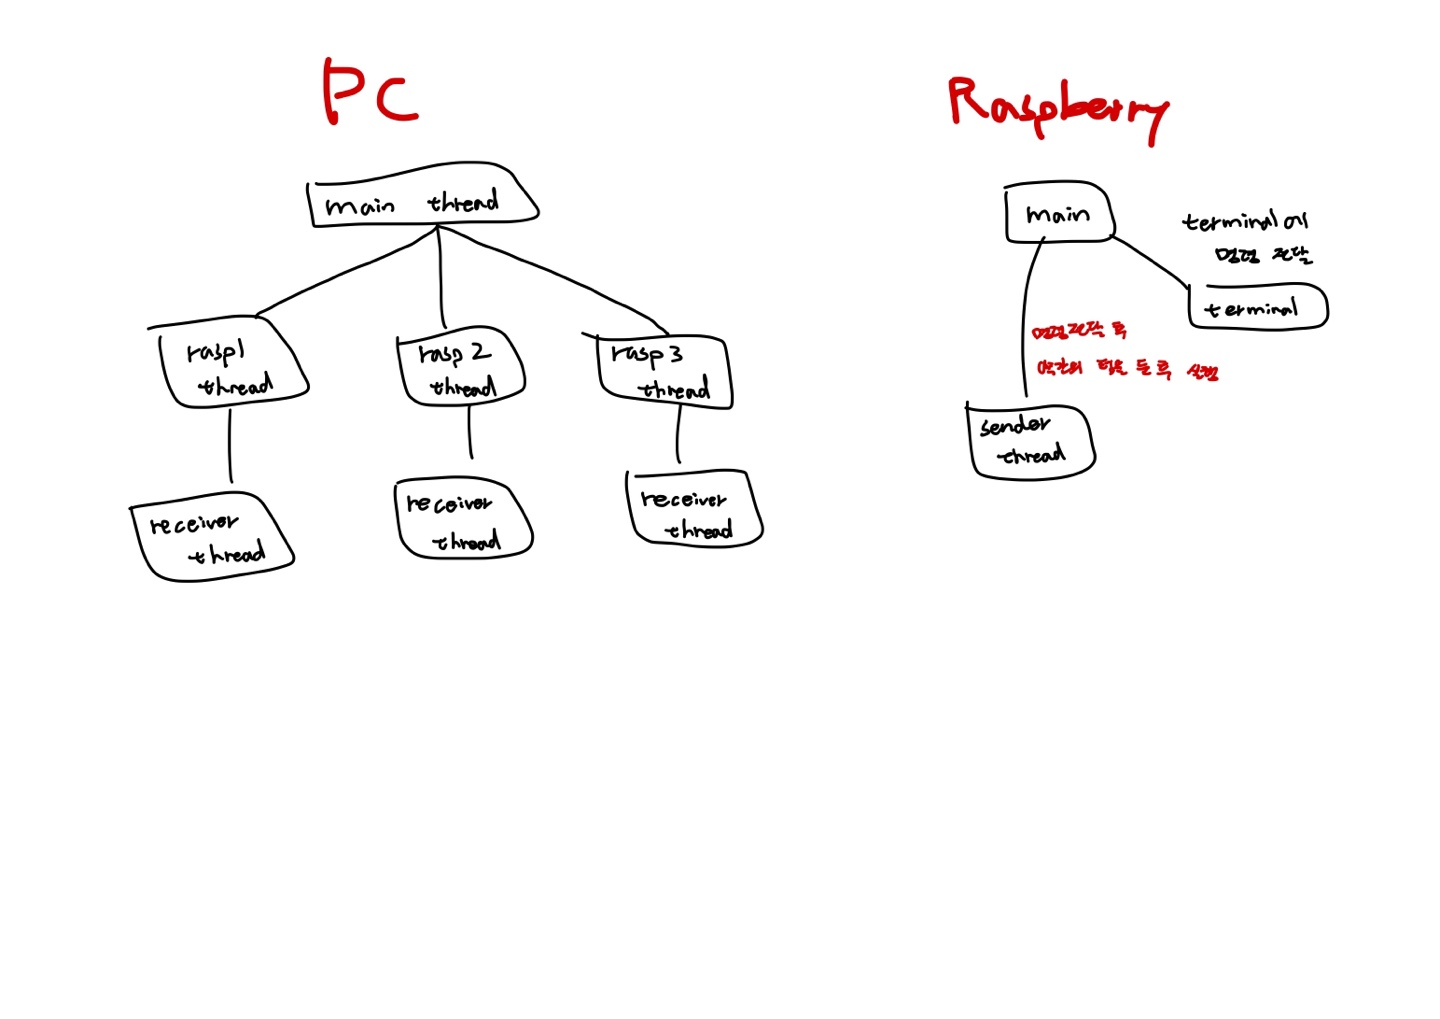 PC
main thread
rasp1
thread
rasp 2
thread
rasp 3
thread
receiver
thread
receiver
thread
receiver
thread
Raspberry
main
terminal에
명령 전달
terminal
명령전달 후
약간의 텀을 둔 후 실행
sender
thread